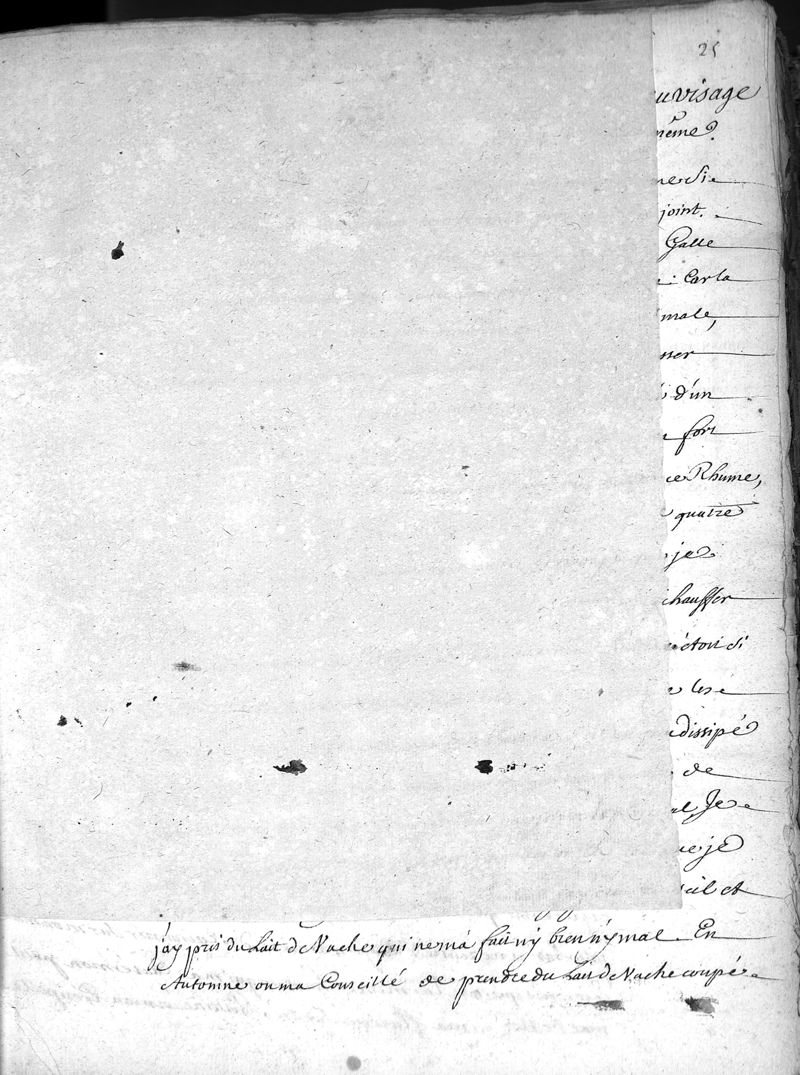 25
visage
même?
joint.
Galle
Carla
male,
d'un
fort
ce Rhume,
quatre
je
chauffer
étoit si
les
dissipé
de
Je
ce je
et
j'ay pris du Lait de Vache qui ne m'a fait n'y bien n'y mal. En
Automne on ma Conseillé de prendre du Lait de Vache coupé